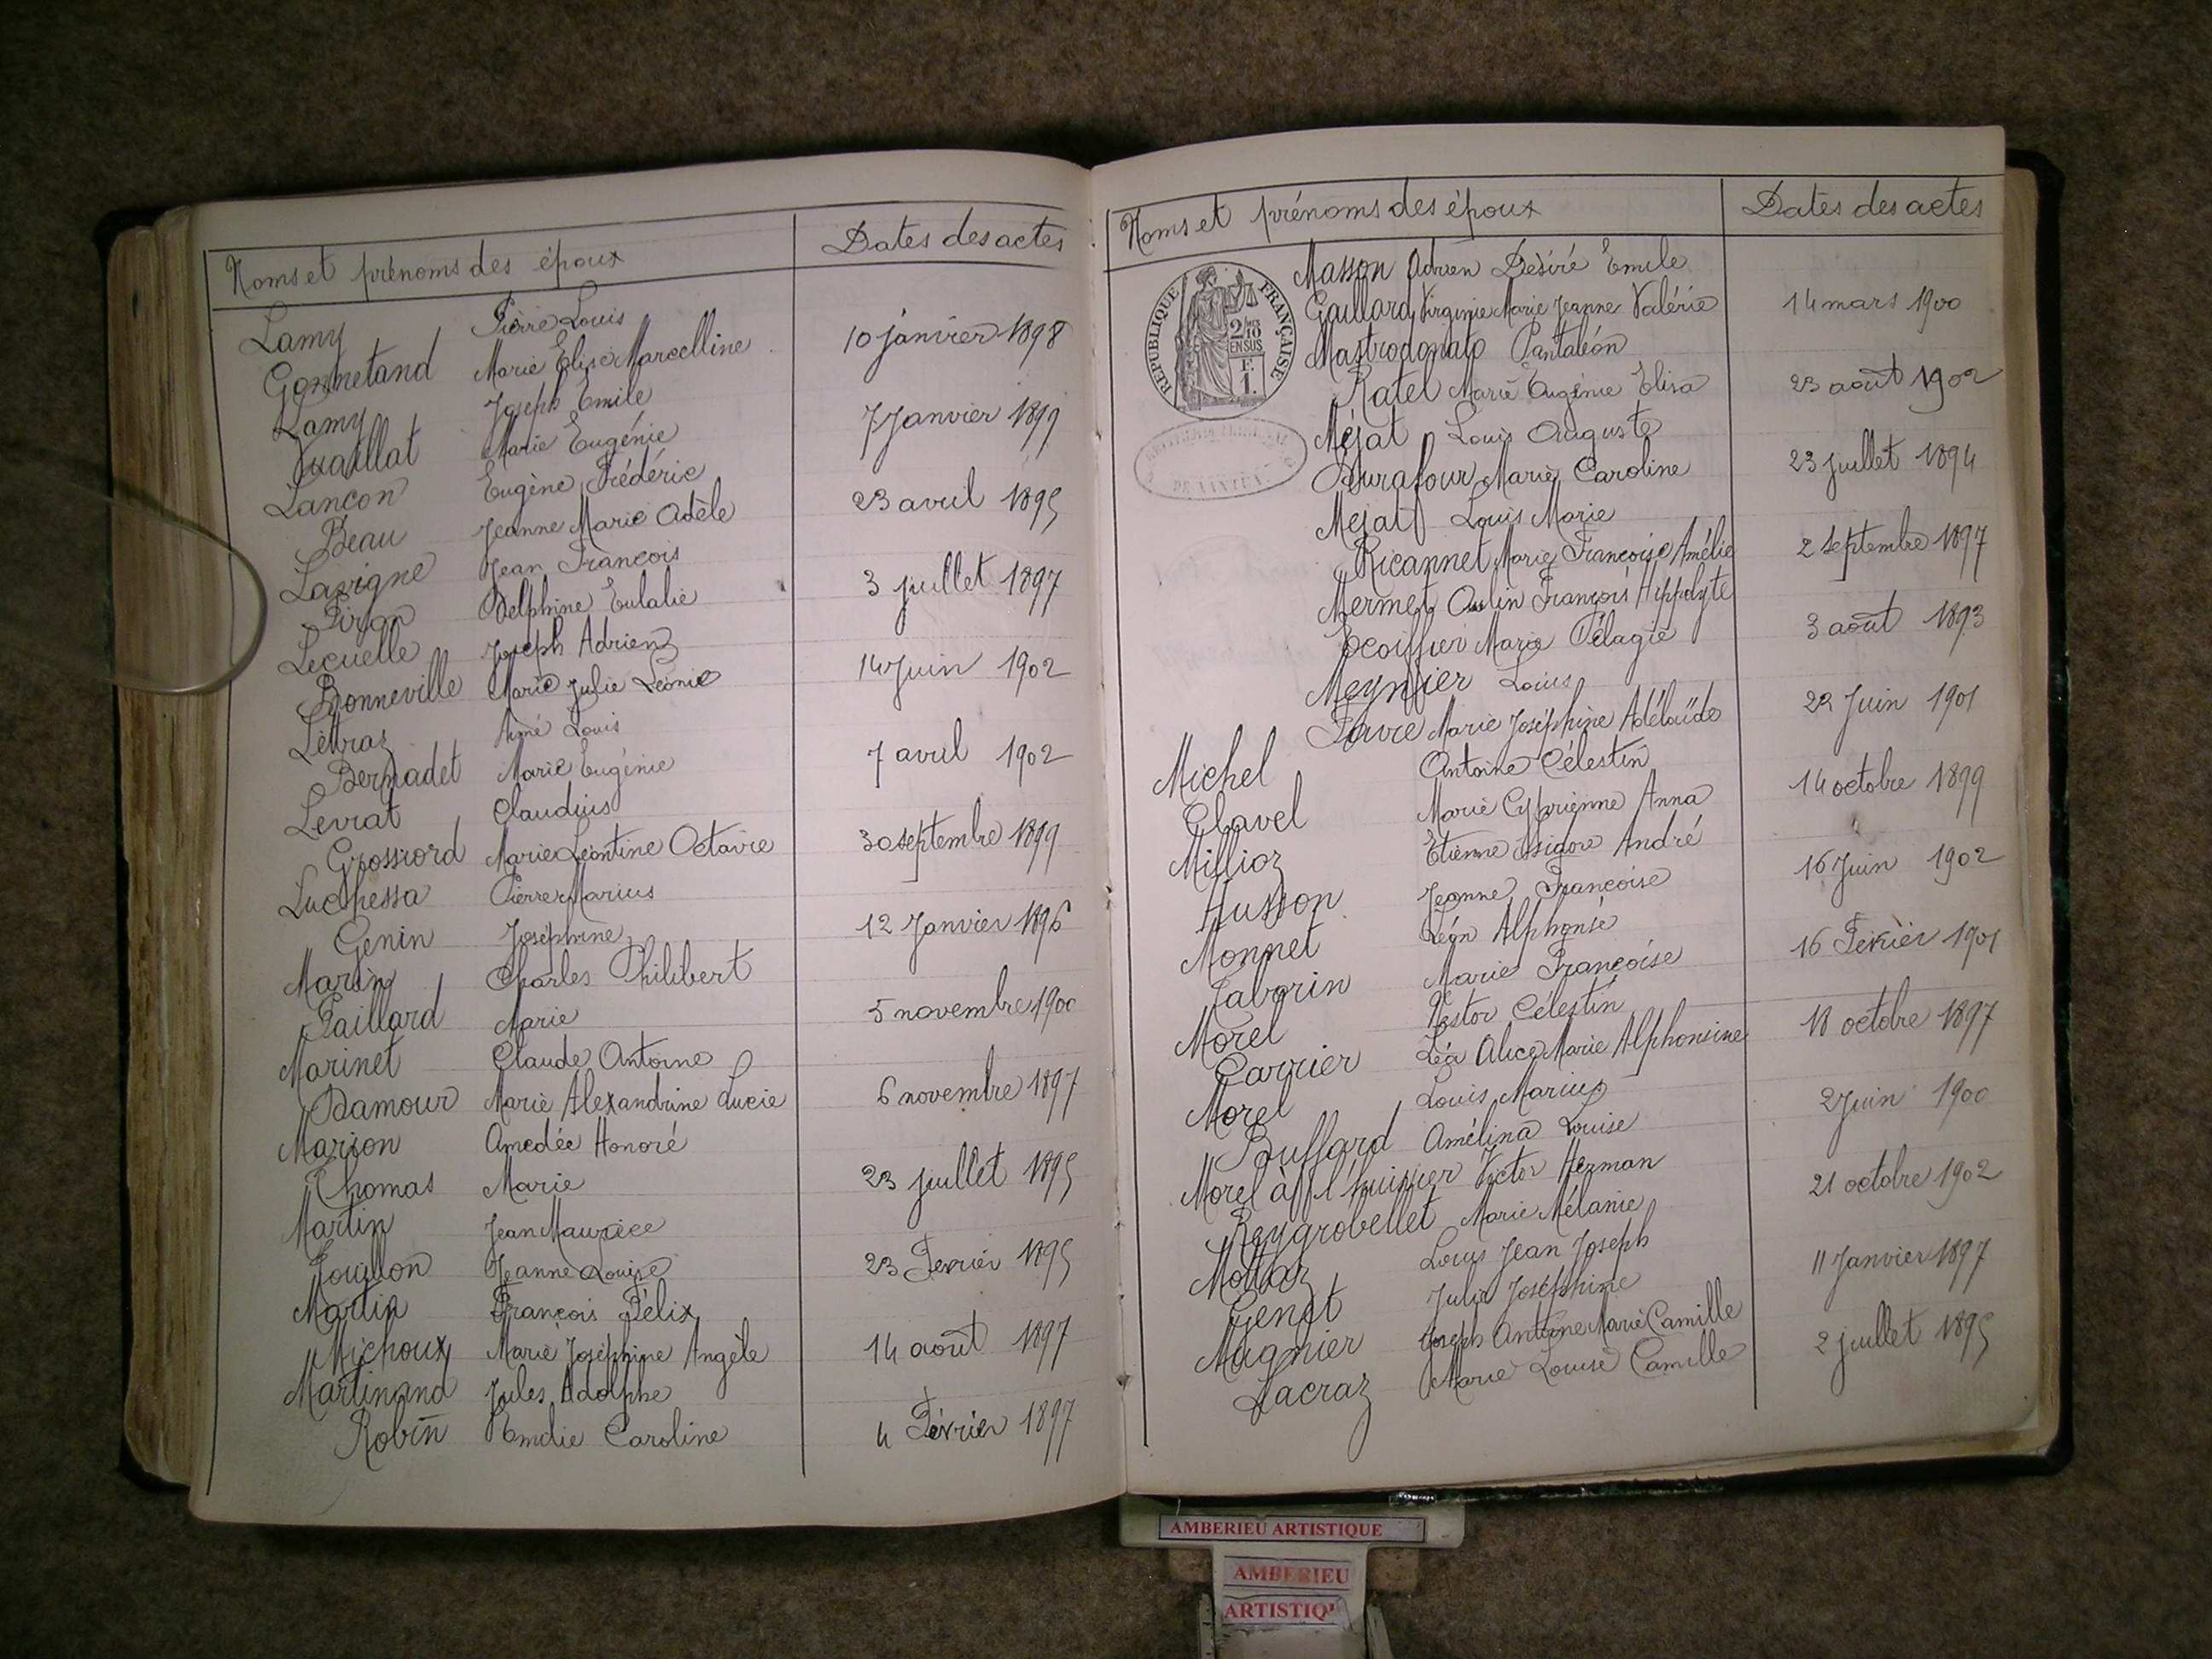 Noms et prénoms des époux Dates des actes
Lamy Pierre Louis
Gonnetand Marie Elise Marcelline 10 janvier 1898
Lamy Joseph Emile
Vuaillat Marie Eugénie 7 Janvier 1899
Lançon Eugène Frédéric
Beau Jeanne Marie Adèle 23 avril 1895
Lavigne Jean François
Piron Delphine Eulalie 3 juillet 1897
Lecuelle Joseph Adrien
Bonneville Marie Julie Léonie 14 Juin 1902
Lévraz Aimé Louis
Bernadet Marie Eugénie 7 avril 1902
Levrat Claudius
Grossiord Marie Léontine Octavie 30 septembre 1899
Luchessa Pierre Marius
Genin Joséphine 12 Janvier 1896
Marin Charles Philibert
Paillard Marie 5 novembre 1900
Marinet Claude Antoine
Damour Marie Alexandrine Lucie 6 novembre 1897
Marion Amedée Honoré
Thomas Marie 23 juillet 1895
Martin Jean Maurice
Pouillon Jeanne Louise 23 Fevrier 1895
Martin François Félix
Michoux Marie Joséphine Angèle 14 août 1897
Martinand Jules Adolphe
Robin Emilie Caroline 4 Février 1897
Noms et prénoms des époux Dates des actes
REPUBLIQUE FRANÇAISE
2/10 EN SUS
F. 1.
Masson Adrien Désiré Emile
Gaillard Virginie Marie Jeanne Valérie 14 mars 1900
Mastrodonato Pantaléon
Ratel Marie Eugénie Elisa 23 août 1902
Méjat Louis Auguste
Durafour Marie Caroline 23 juillet 1894
Mejat Louis Marie
Ricannet Marie Françoise Amélie 2 septembre 1897
Mermet François Hippolyte
Ecoiffier Marie Pélagie 3 août 1893
Meynier Louis
Favre Marie Joséphine Adélaïde 22 Juin 1901
Michel Antoine Célestin
Clavel Marie Cyprienne Anna 14 octobre 1899
Millioz Etienne Isidore André
Husson Jeanne Françoise 16 Juin 1902
Monnet Léon Alphonse
Taborin Marie Françoise 16 Février 1901
Morel Nestor Célestin
Carrier Léa Alice Marie Alphonsine 18 octobre 1897
Morel Louis Marius
Buffard Amélina Louise 2 Juin 1900
Morel à l'huissier Victor Herman
Reygrobellet Marie Mélanie 21 octobre 1902
Mottaz Louis Jean Joseph
Genet Julia Joséphine 11 Janvier 1897
Mugnier Joseph Antoine Marie Camille
Lacraz Marie Louise Camille 2 juillet 1895
AMBERIEU ARTISTIQUE
AMBERIEU
ARTISTIQU